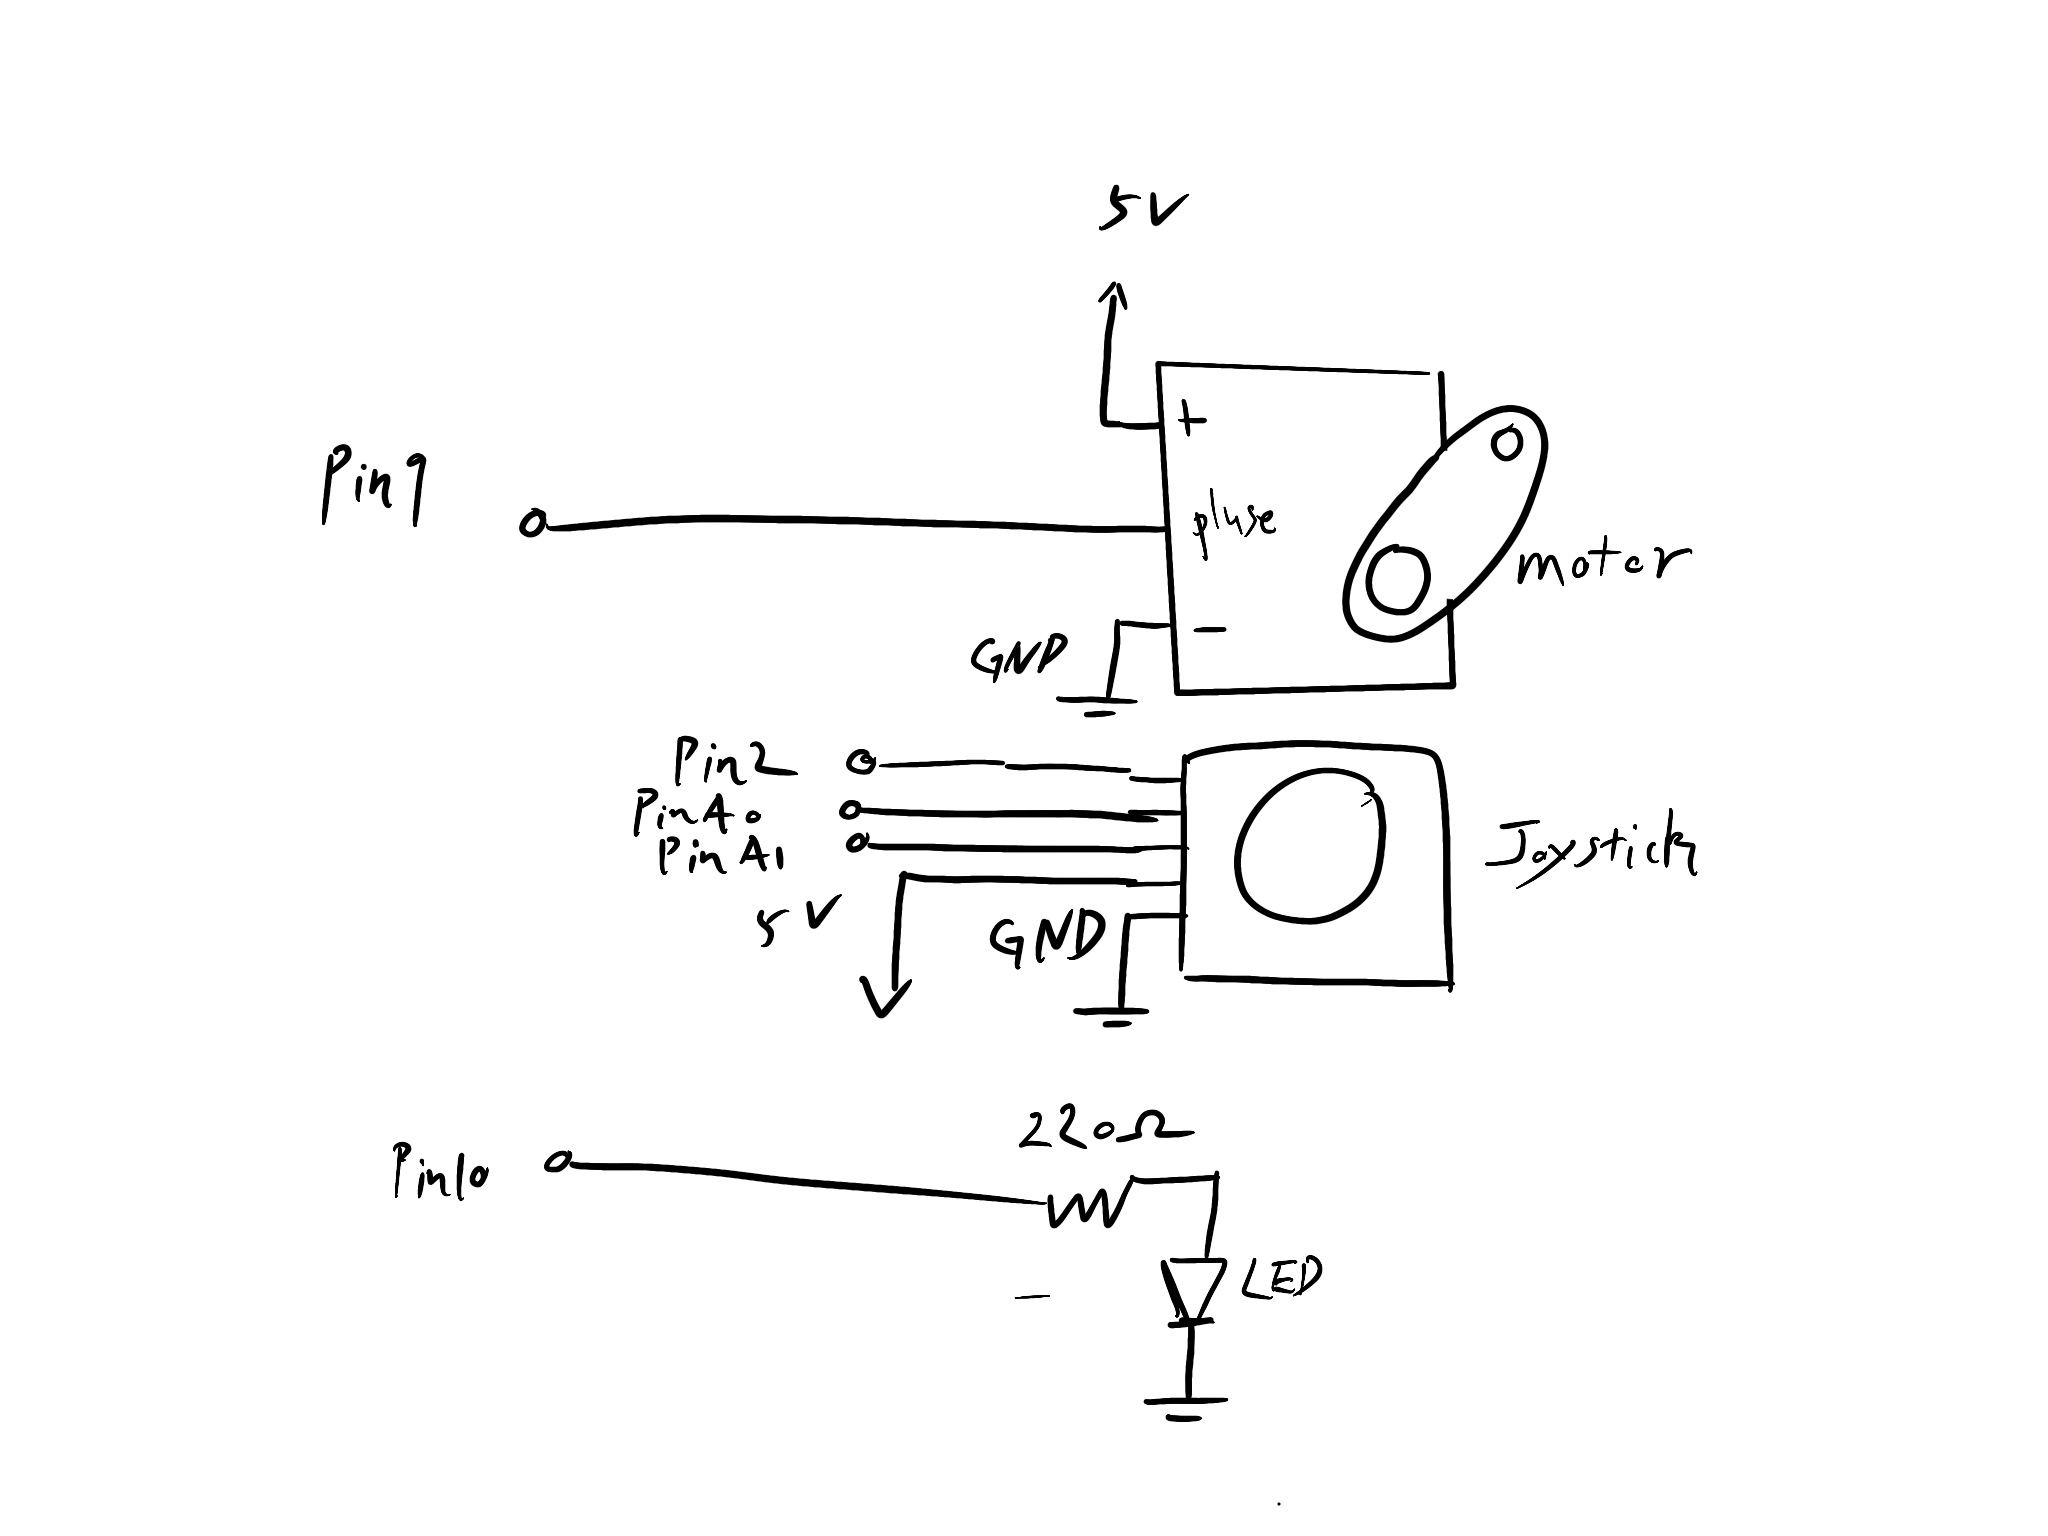 5V
+
Pin9
pluse
motor
-
GND
Pin2
PinA0
PinA1
Joystick
5V
GND
220Ω
Pin10
LED